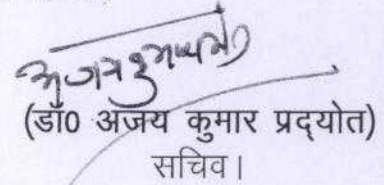 (डॉ0 अजय कुमार प्रद्योत)
सचिव।